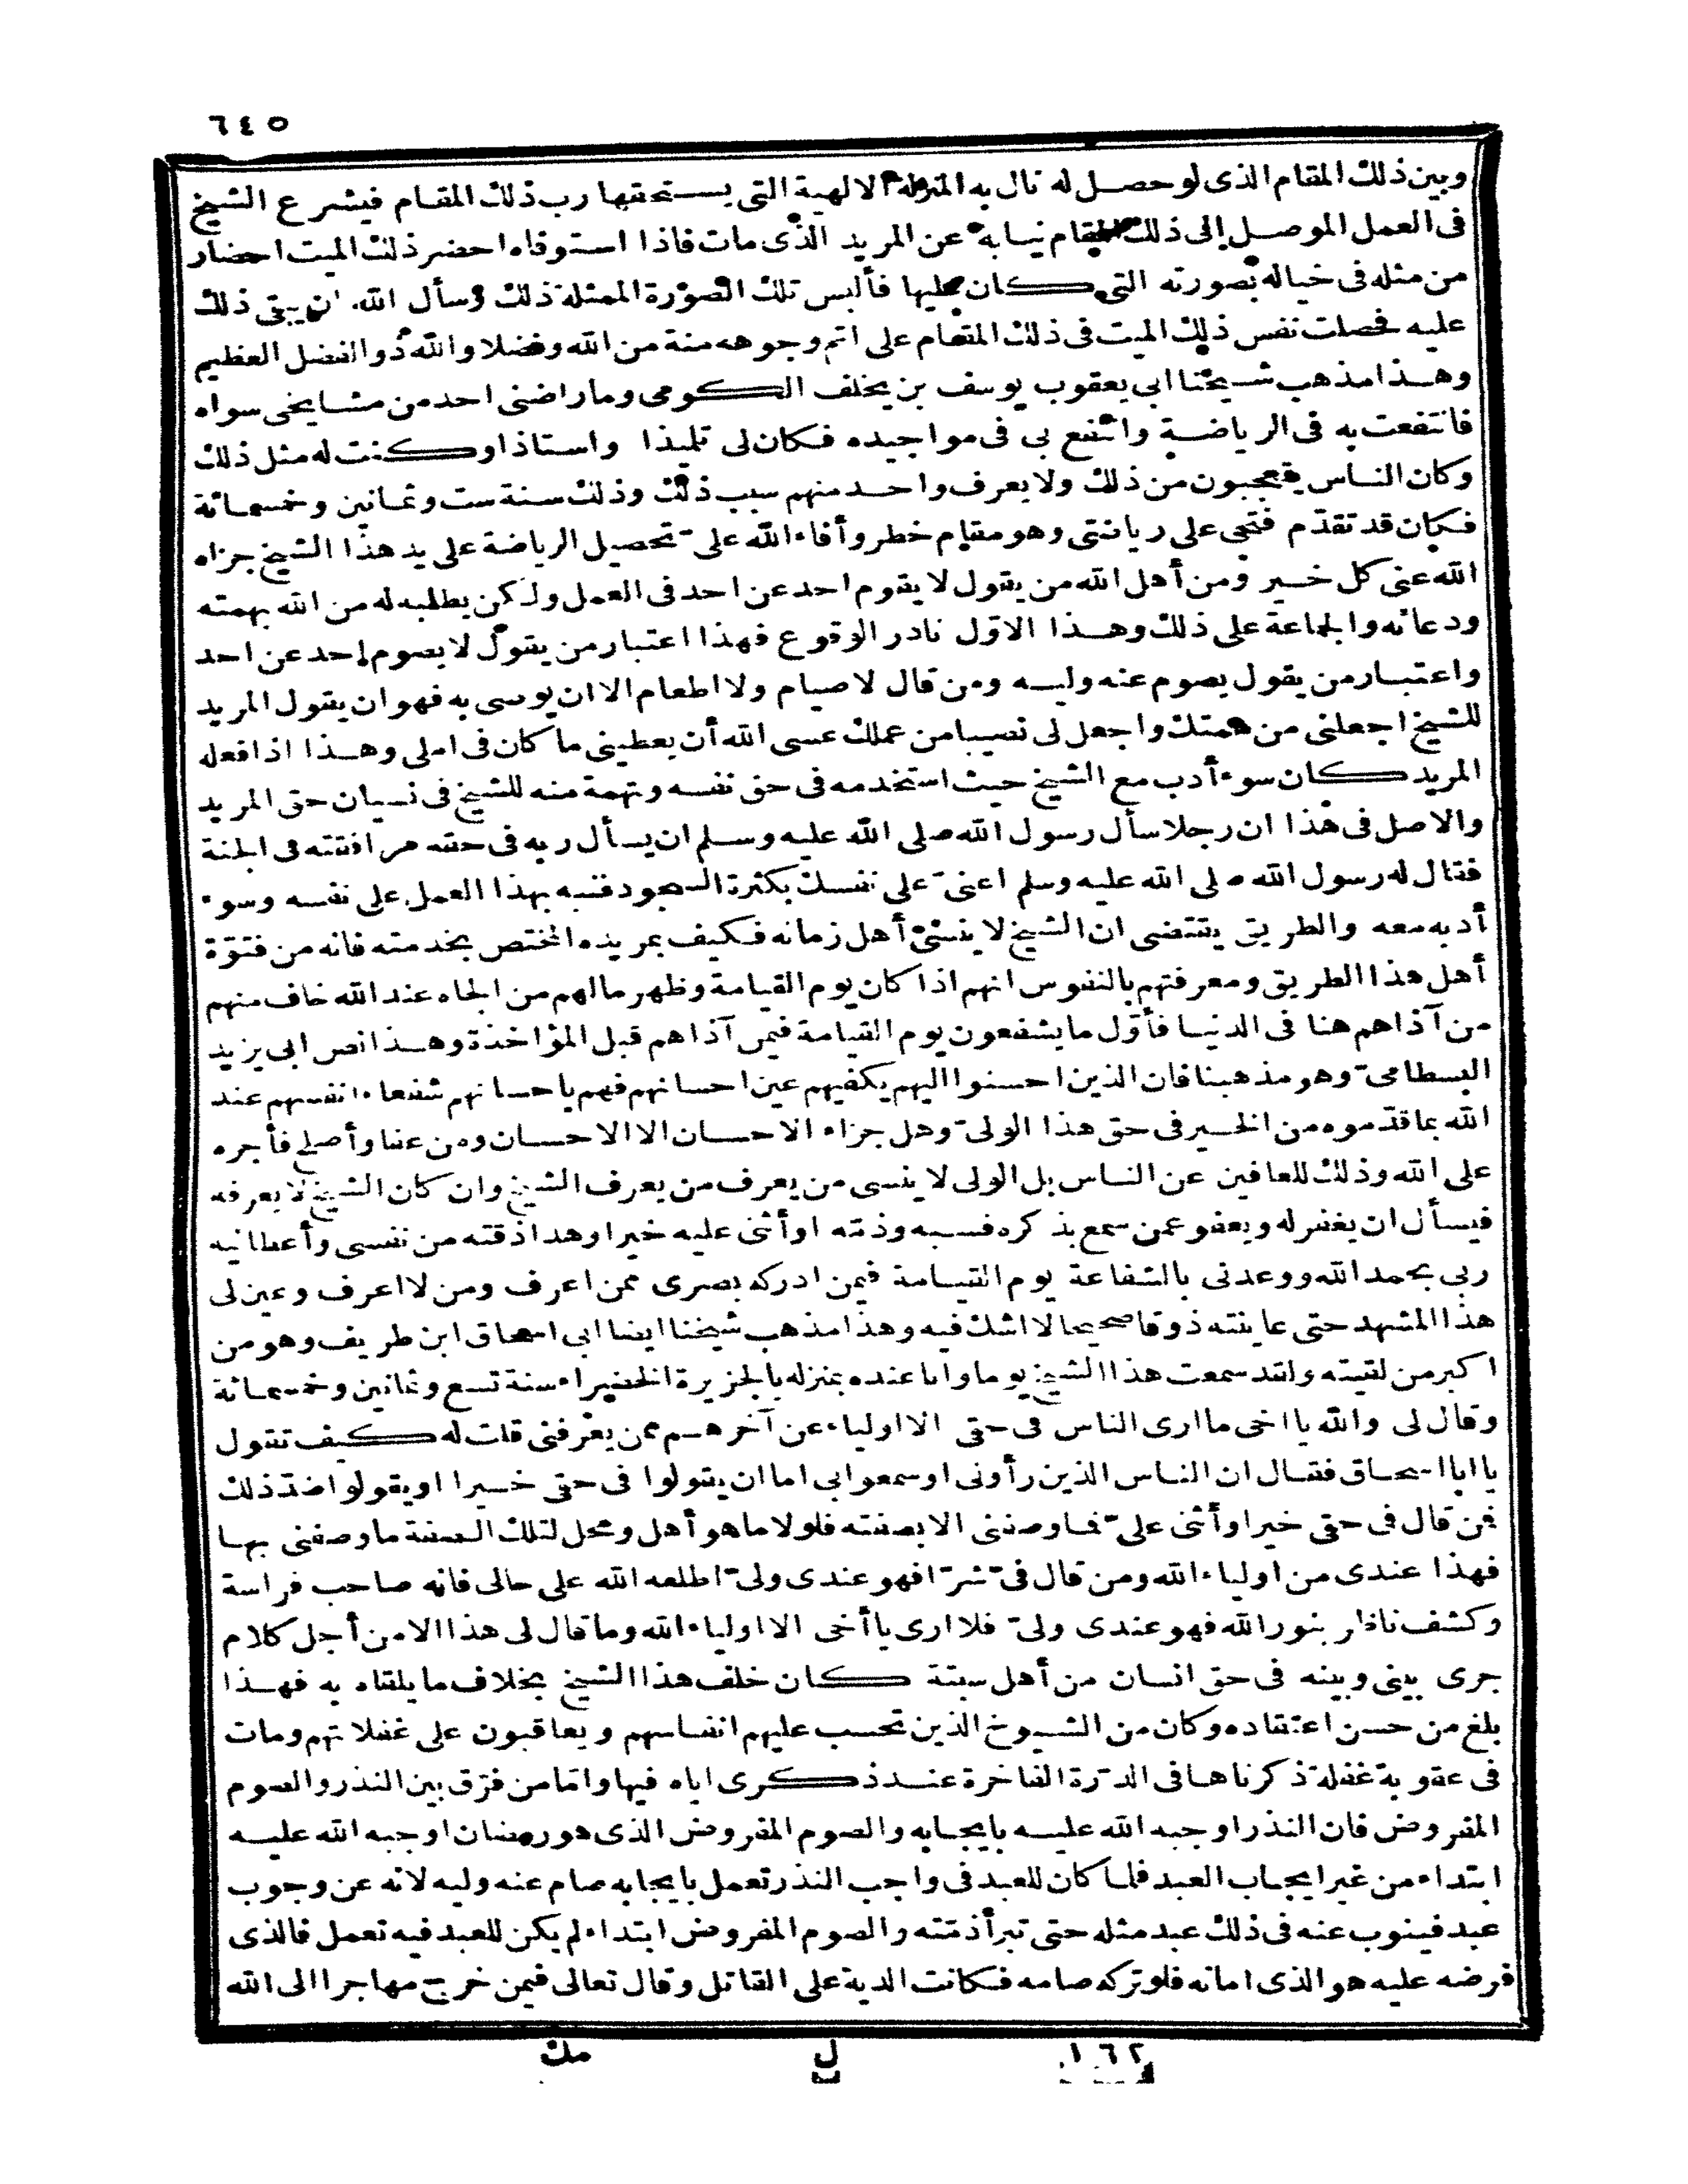 ٦٤٥
وبين ذلك المقام الذى لو حصل له نال به المنزلة الالهية التى يستحقها رب ذلك المقام فيشرع الشيخ
فى العمل الموصل إلى ذلك المقام نيابة عن المريد الذى مات فاذا استوفاه احضر ذلك الميت احضار
من مثله فى خياله بصورته التى كان عليها فألبس تلك الصورة الممثلة ذلك وسأل الله ان يبقى ذلك
عليه فحصلت نفس ذلك الميت فى ذلك المقام على اتم وجوهه منة من الله وفضلا والله ذو الفضل العظيم
وهذا مذهب شيخنا ابى يعقوب يوسف بن يخلف الكومى وما راضنى احد من مشايخى سواه
فانتفعت به فى الرياضة وانتفع بى فى مواجيده فكان لى تلميذا واستاذا وكنت له مثل ذلك
وكان الناس يتعجبون من ذلك ولا يعرف واحد منهم سبب ذلك وذلك سنة ست وثمانين وخمسمائة
فكان قد تقدّم فتحى على رياضتى وهو مقام خطر وأفاء الله علىّ تحصيل الرياضة على يد هذا الشيخ جزاه
الله عنى كل خير ومن أهل الله من يقول لا يقوم احد عن احد فى العمل ولكن يطلبه له من الله بهمته
ودعائه والجماعة على ذلك وهذا الاوّل نادر الوقوع فهذا اعتبار من يقول لا يصوم احد عن احد
واعتبار من يقول يصوم عنه وليه ومن قال لا صيام ولا اطعام الا ان يوسى به فهو ان يقول المريد
للشيخ اجعلنى من همتك واجعل لى نصيبا من عملك عسى الله أن يعطينى ما كان فى املى وهذا اذا فعله
المريد كان سوء أدب مع الشيخ حيث استخدمه فى حق نفسه وتهمة منه للشيخ فى نسيان حق المريد
والاصل فى هذا ان رجلا سأل رسول الله صلى الله عليه وسلم ان يسأل ربه فى حقه مرافقته فى الجنة
فقال له رسول الله صلى الله عليه وسلم اعنىّ على نفسك بكثرة السجود فنبه بهذا العمل على نفسه وسوء
أدبه معه والطريق يقتضى ان الشيخ لا ينسى أهل زمانه فكيف بمريده المختص بخدمته فانه من فتوّة
أهل هذا الطريق ومعرفتهم بالنفوس انهم اذا كان يوم القيامة وظهر مالهم من الجاه عند الله خاف منهم
من آذاهم هنا فى الدنيا فأوّل ما يشفعون يوم القيامة فيمن آذاهم قبل المؤاخذة وهذا نص ابى يزيد
البسطامىّ وهو مذهبنا فان الذين احسنوا اليهم يكفيهم عين احسانهم فهم باحسانهم شفعاء انفسهم عند
الله بما قدّموه من الخير فى حق هذا الولىّ وهل جزاء الاحسان الا الاحسان ومن عفا وأصلح فأجره
على الله وذلك للعافين عن الناس بل الولى لا ينسى من يعرف من يعرف الشيخ وان كان الشيخ لا يعرفه
فيسأل ان يغفر له ويعفو عمن سمع بذكره فسبه وذمّه او أثنى عليه خيرا وهذا ذقته من نفسى وأعطانيه
ربى بحمد الله ووعدنى بالشفاعة يوم القيامة فيمن ادركه بصرى ممن اعرف ومن لا اعرف وعين لى
هذا المشهد حتى عاينته ذوقا صحيحا لا اشك فيه وهذا مذهب شيخنا ايضا ابى اسحاق ابن طريف وهو من
اكبر من لقيته ولقد سمعت هذا الشيخ يوما وانا عنده بمنزله بالجزيرة الخضراء سنة تسع وثمانين وخمسمائة
وقال لى والله يا اخى ما ارى الناس فى حقى الا اولياء عن آخرهم ممن يعرفنى قلت له كيف تقول
يا ابا اسحاق فقال ان الناس الذين رأونى او سمعوا بى اما ان يقولوا فى حقى خيرا او يقولوا ضدّ ذلك
فمن قال فى حقى خيرا وأثنى علىّ فما وصفنى الا بصفته فلولا ما هو أهل ومحل لتلك الصفة ما وصفنى بها
فهذا عندى من اولياء الله ومن قال فىّ شرّا فهو عندى ولىّ اطلعه الله على حالى فانه صاحب فراسة
وكشف ناظر بنور الله فهو عندى ولىّ فلا ارى يا أخى الا اولياء الله وما قال لى هذا الا من أجل كلام
جرى بينى وبينه فى حق انسان من أهل سبتة كان خلف هذا الشيخ بخلاف ما يلقاه به فهذا
بلغ من حسن اعتقاده وكان من الشيوخ الذين تحسب عليهم انفاسهم ويعاقبون على غفلاتهم ومات
فى عقوبة غفلة ذكرناها فى الدرّة الفاخرة عند ذكرى اياه فيها وامّا من فرّق بين النذر والصوم
المفروض فان النذر اوجبه الله عليه بايجابه والصوم المفروض الذى هو رمضان اوجبه الله عليه
ابتداء من غير ايجاب العبد فلما كان للعبد فى واجب النذر تعمل بايجابه صام عنه وليه لانه عن وجوب
عبد فينوب عنه فى ذلك عبد مثله حتى تبرأ ذمّته والصوم المفروض ابتداء لم يكن للعبد فيه تعمل فالذى
فرضه عليه هو الذى اماته فلو تركه صامه فكانت الدية على القاتل وقال تعالى فيمن خرج مهاجرا الى الله
١٦٢ ل مك